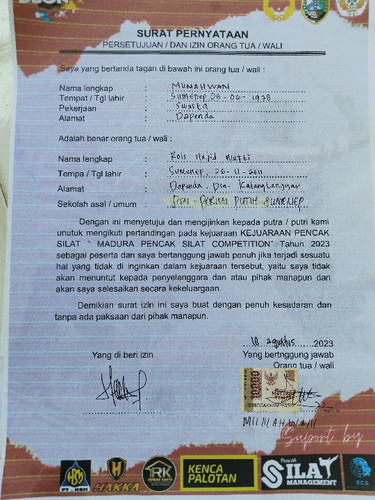 SURAT PERNYATAAN
PERSETUJUAN / DAN IZIN ORANG TUA / WALI
Saya yang bertanda tagan di bawah ini orang tua / wali :
Nama lengkap : MUNAHWAN
Tempat / Tgl lahir : Sumenep 06-06-1978
Pekerjaan : Swasta
Alamat : Dapenda
Adalah benar orang tua / wali :
Nama lengkap :
Tempa / Tgl lahir : Sumenep, 26-11-2011
Alamat : Dapenda. Dsn.
Sekolah asal / umum : PUTIH SUMENEP
Dengan ini menyetujui dan mengijinkan kepada putra / putri kami
unutuk mengikuti pertandingan pada kejuaraan KEJUARAAN PENCAK
SILAT " MADURA PENCAK SILAT COMPETITION" Tahun 2023
sebagai peserta dan saya bertanggung jawab penuh jika terjadi sesuatu
hal yang tidak di inginkan dalam kejuaraan tersebut, yaitu saya tidak
akan menuntut kepada penyelenggara dan atau pihak manapun dan
akan saya selesaikan secara kekeluargaan.
Demikian surat izin ini saya buat dengan penuh kesadaran dan
tanpa ada paksaan dari pihak manapun.
18 agustus 2023
Yang di beri izin
Yang bertnggung jawab
Orang tua / wali
10000
MUNAHWAN
Suport by
PT. HBJI
HAKKA
RK
KENCA
PALOTAN
Pencak
SILAT
MANAGEMENT